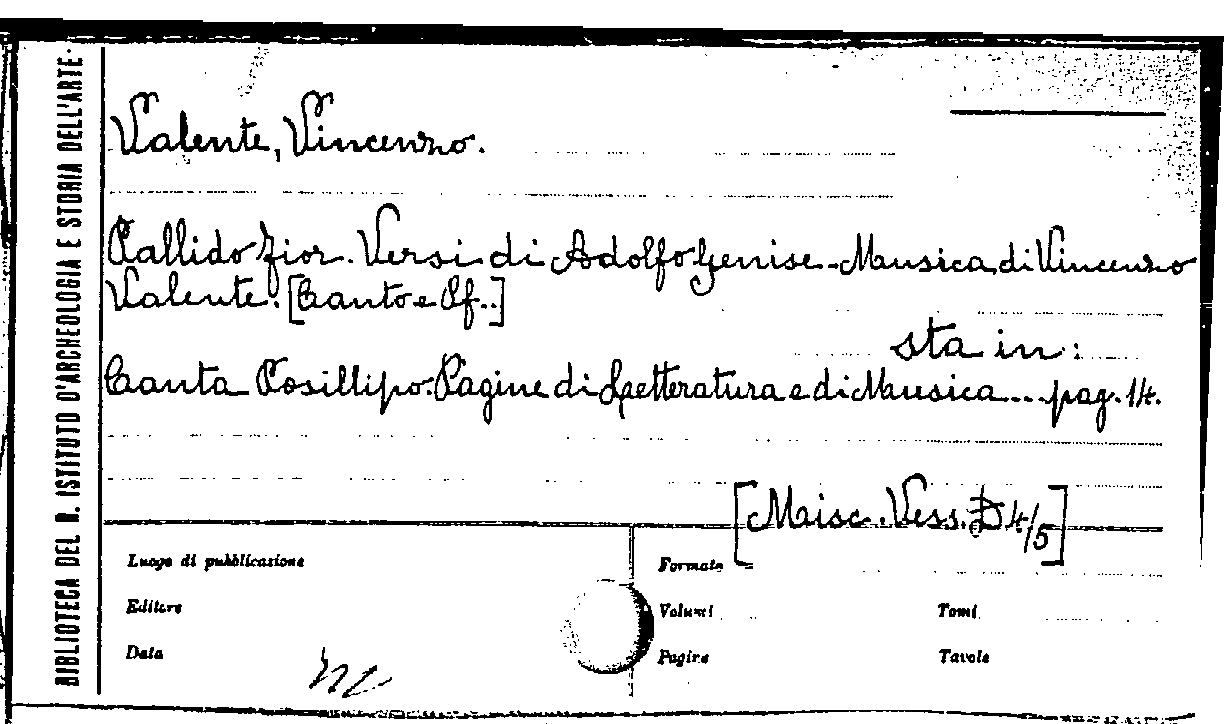 BIBLIOTECA DEL R. ISTITUTO D'ARCHEOLOGIA E STORIA DELL'ARTE.
Valente, Vincenzo.
Pallido fior. Versi di Adolfo Genise. Musica di Vincenzo
Valente. [Canto e Pf..]
sta in:
Canta Posillipo. Pagine di Letteratura e di Musica.... pag. 14.
[Misc. Vess. D 4/5]
Luogo di pubblicazione
Formato
Editore
Volumi
Tomi
Data
Pagine
Tavole